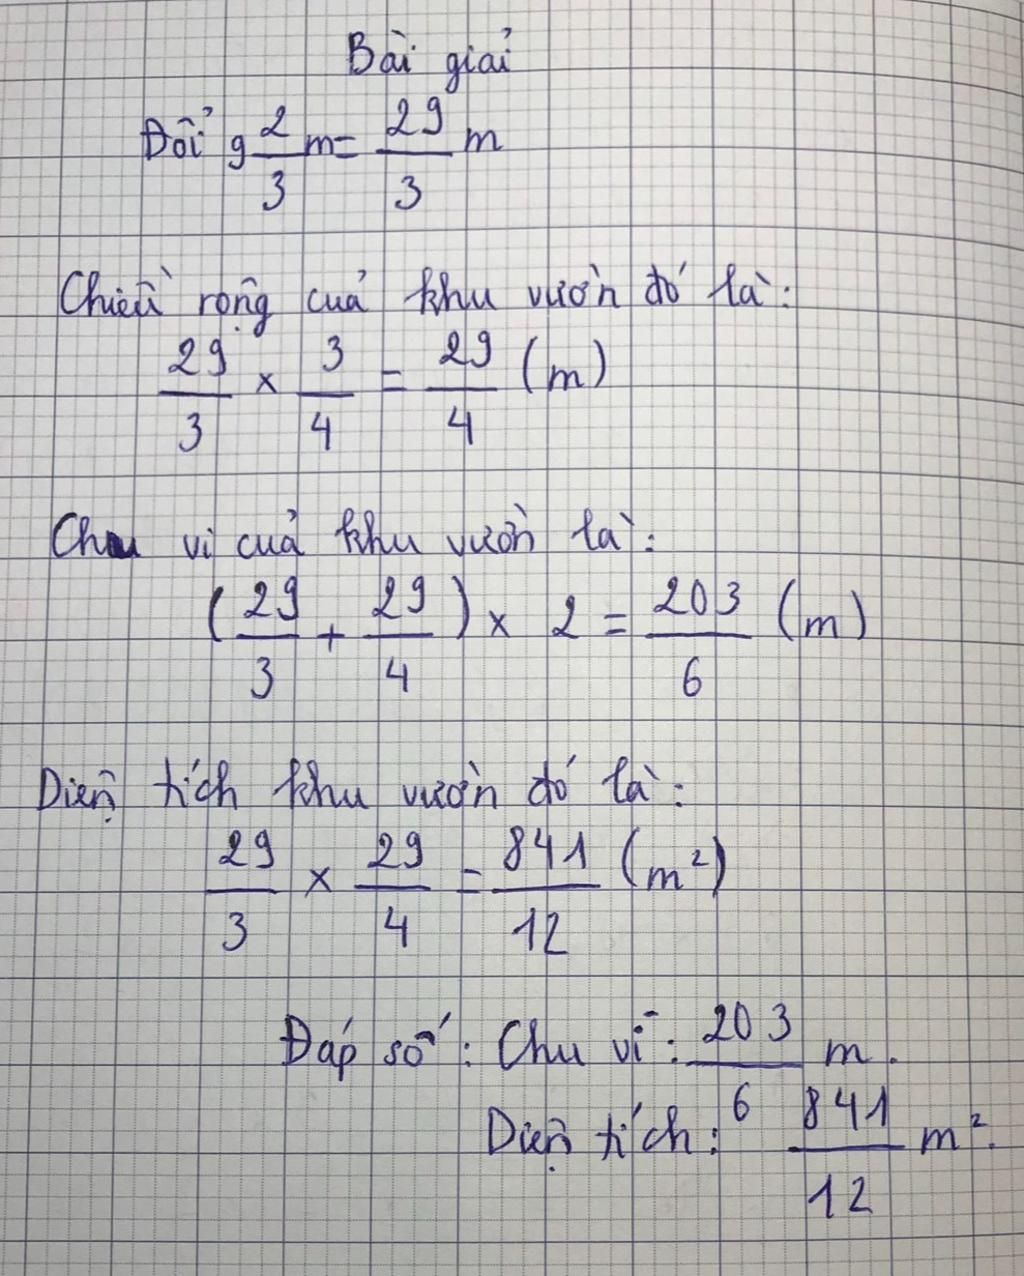 Bài giải
Đổi 9 2/3 m = 29/3 m
Chiều rộng của khu vườn đó là:
29/3 × 3/4 = 29/4 (m)
Chu vi của khu vườn là:
(29/3 + 29/4) × 2 = 203/6 (m)
Diện tích khu vườn đó là:
29/3 × 29/4 = 841/12 (m²)
Đáp số: Chu vi: 203/6 m.
Diện tích: 841/12 m².